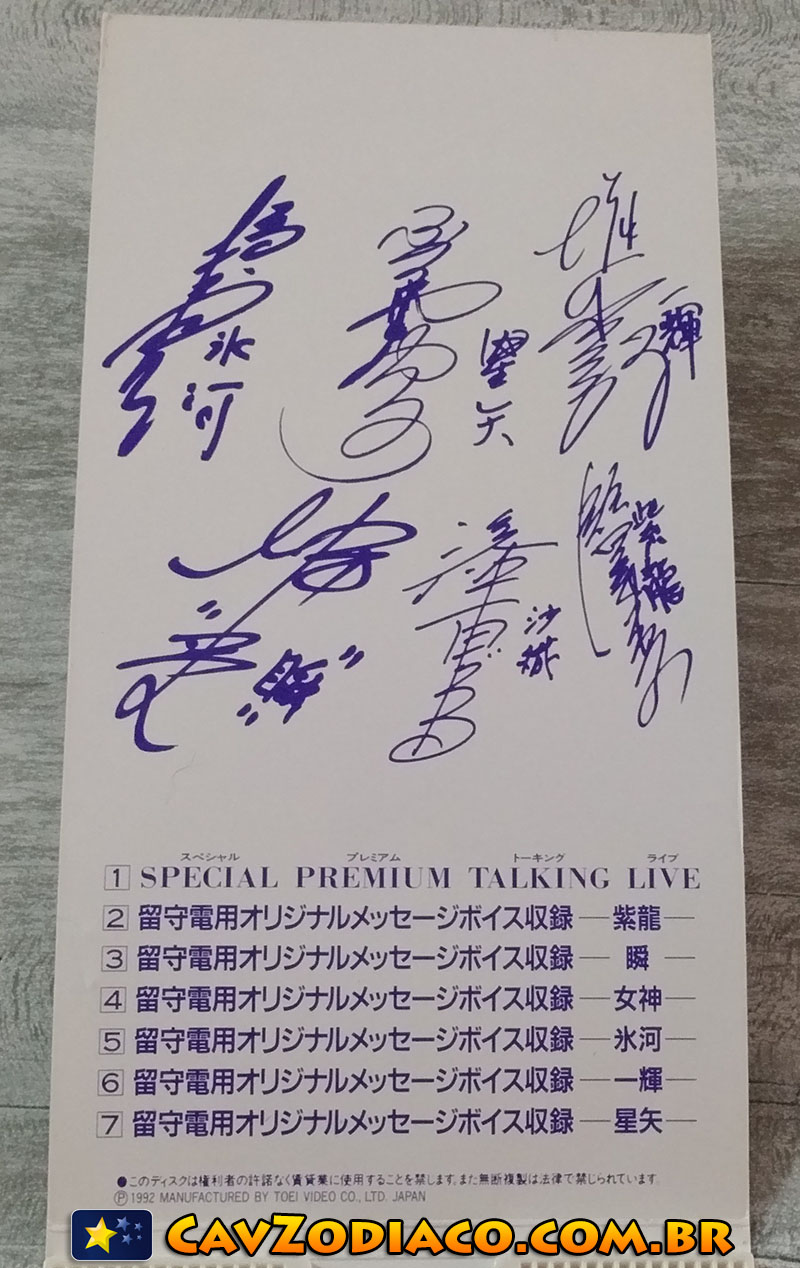 氷河
星矢
一輝
"瞬"
沙織
紫龍
スペシャル プレミアム トーキング ライブ
1 SPECIAL PREMIUM TALKING LIVE
2 留守電用オリジナルメッセージボイス収録—紫龍—
3 留守電用オリジナルメッセージボイス収録— 瞬 —
4 留守電用オリジナルメッセージボイス収録—女神—
5 留守電用オリジナルメッセージボイス収録—氷河—
6 留守電用オリジナルメッセージボイス収録—一輝—
7 留守電用オリジナルメッセージボイス収録—星矢—
●このディスクは権利者の許諾なく賃貸業に使用することを禁じます。また無断複製は法律で禁じられています。
Ⓟ1992 MANUFACTURED BY TOEI VIDEO CO., LTD. JAPAN
CAVZODIACO.COM.BR